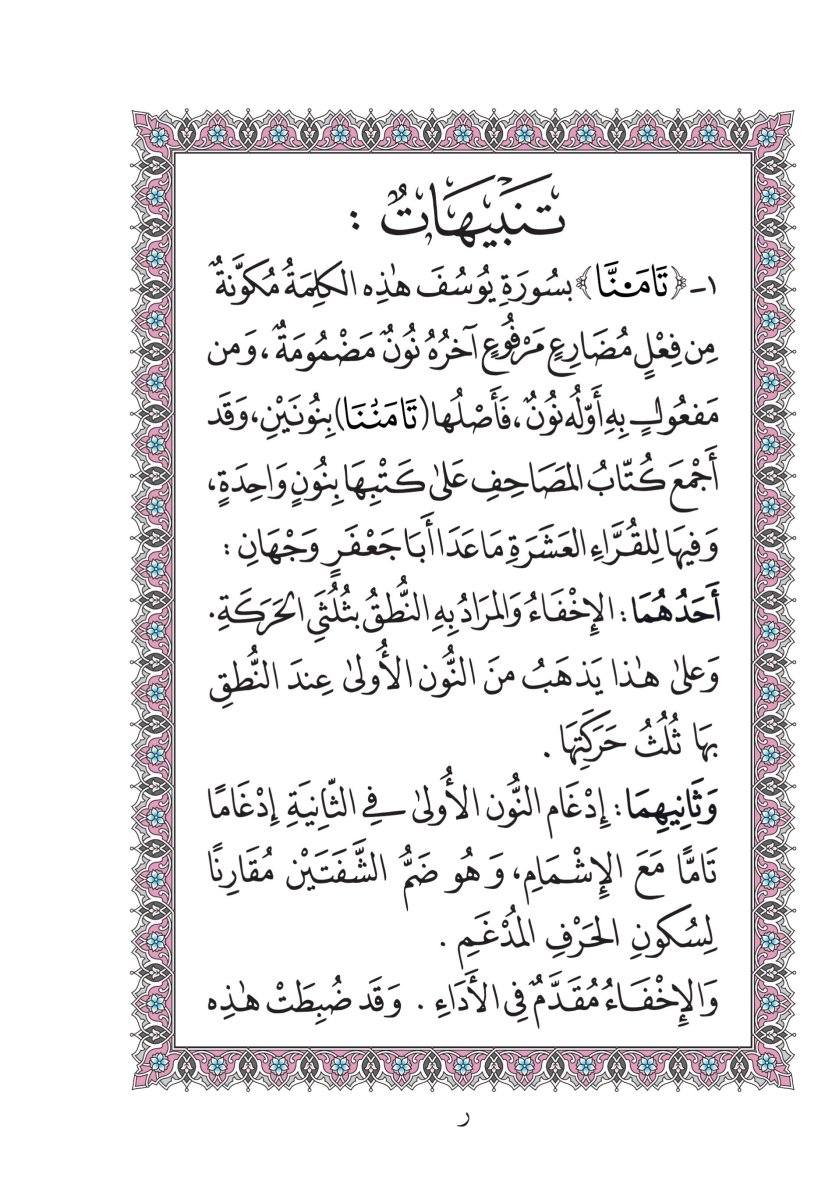 تَنبِيهَاتٌ :
١- ﴿تَامَ۬نَّا﴾ بسُورَةِ يُوسُفَ هَٰذِه الكَلِمَةُ مُكَوَّنةٌ
مِن فِعْلٍ مُضَارِعٍ مَرْفُوعٍ آخرُهُ نُونٌ مَضْمُومَةٌ، وَمن
مَفعُولٍ بِهِ أَوّلُه نُونٌ، فَأَصْلُها (تَامَنُنَا) بِنُونَيْنِ، وَقَد
أَجْمَعَ كُتّابُ المَصَاحِفِ عَلىٰ كَتْبِهَا بِنُونٍ وَاحِدَةٍ،
وَفِيهَا لِلقُرَّاءِ العَشَرَةِ مَا عَدَا أَبَا جَعْفَرٍ وَجْهَانِ :
أَحَدُهُمَا : الإِخْفَاءُ وَالمرَادُ بِهِ النُّطقُ بثُلُثَيِ الحَرَكَةِ.
وَعلىٰ هٰذا يَذهَبُ منَ النُّون الأُولىٰ عِندَ النُّطقِ
بهَا ثُلُثُ حَرَكَتِهَا .
وَثَانِيهِمَا : إِدْغَام النُّون الأُولىٰ فِي الثّانِيَةِ إِدْغَامًا
تَامًّا مَعَ الإِشْمَامِ، وَهُو ضَمُّ الشَّفَتَيْن مُقَارِنًا
لِسُكونِ الحَرْفِ المُدْغَمِ .
وَالإِخْفَاءُ مُقَدَّمٌ فِي الأَدَاءِ . وَقَد ضُبِطَتْ هَٰذِه
ر